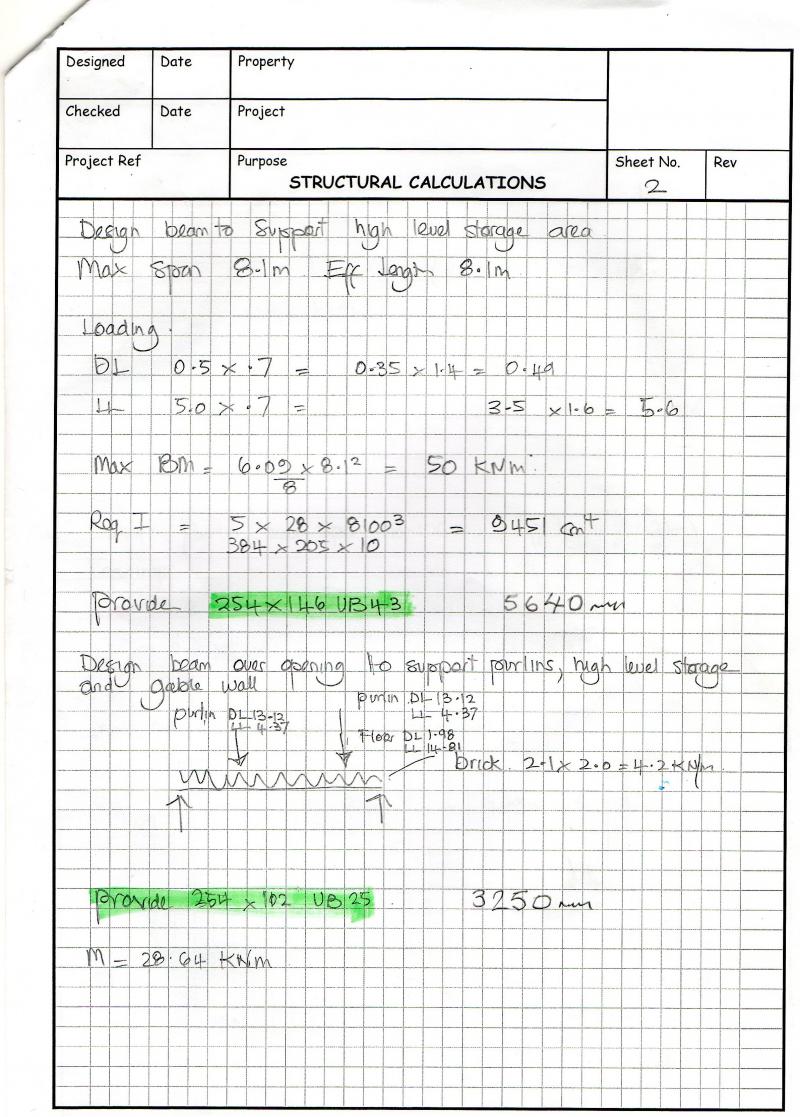 Designed Date Property
Checked Date Project
Project Ref Purpose Sheet No. Rev
STRUCTURAL CALCULATIONS 2
Design beam to support high level storage area
Max Span 8.1m Eff Length 8.1m
Loading.
DL 0.5 × .7 = 0.35 × 1.4 = 0.49
LL 5.0 × .7 = 3.5 × 1.6 = 5.6
Max BM = 6.09 × 8.1² = 50 KNm
8
Req I = 5 × 28 × 8100³ = 9451 cm⁴
384 × 205 × 10
Provide 254 × 146 UB 43 5640 mm
Design beam over opening to support purlins, high level storage
and gable wall
purlin DL 13.12
LL 4.37
purlin DL 13.12
LL 4.37
Floor DL 1.98
LL 14.81
brick 2.1 × 2.0 = 4.2 KN/m
Provide 254 × 102 UB 25 3250 mm
M = 28.64 KNm